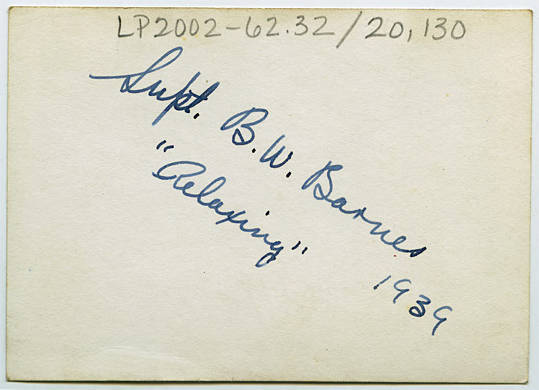 LP2002-62.32/20,130
Supt. B.W. Barnes
"Relaxing"
1939